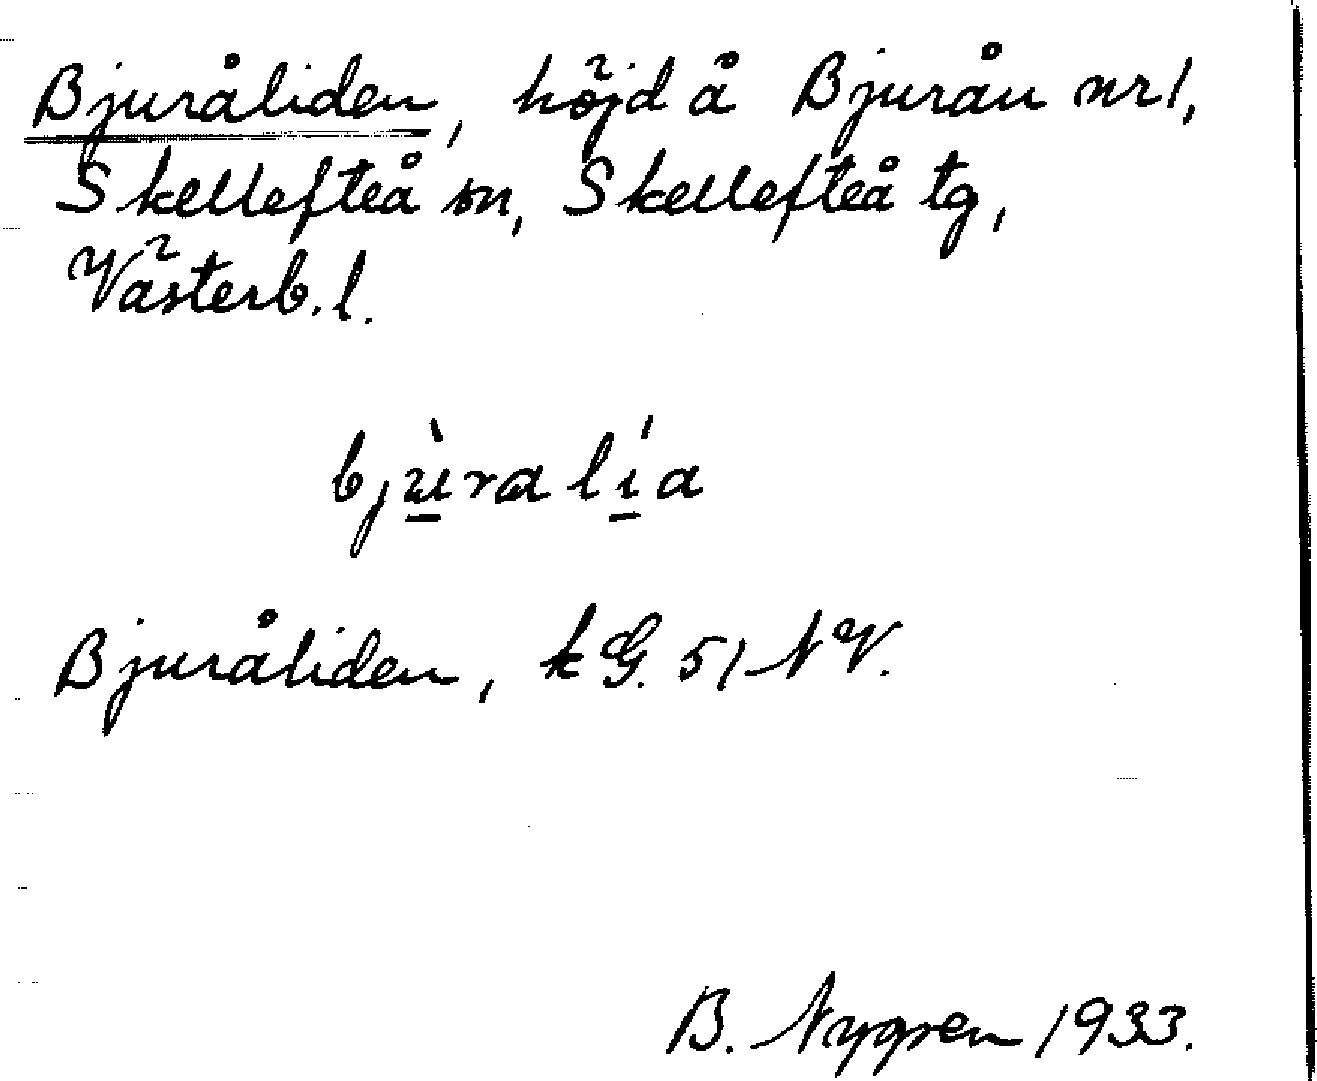 Bjuråliden, höjd å Bjurån nr 1,
Skellefteå sn, Skellefteå tg,
Västerb. l.
bjù̱ralí̱a
Bjuråliden, kG. 51 NV.
B. Nygren 1933.